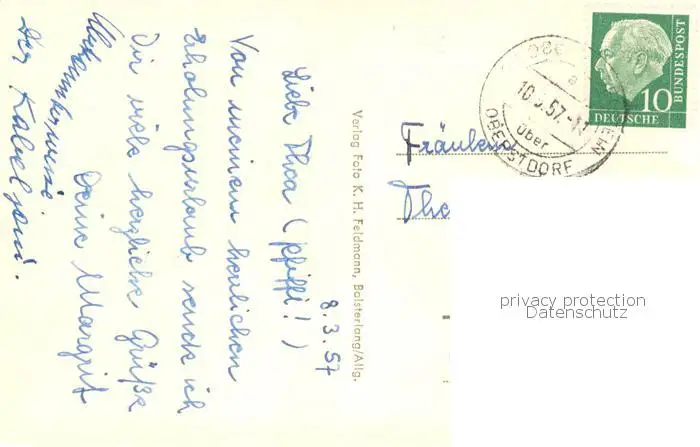 8.3.57
Liebe Thea (pfiffi!)
Von meinem herrlichen
Erholungsurlaub sende ich
Dir viele herzliche Grüße
Deine Margrit
Der
Verlag Foto K. H. Feldmann, Bolsterlang/Allg.
Fräulein
The
10.3.57.-17
über
OBERSTDORF
10
DEUTSCHE
BUNDESPOST
privacy protection
Datenschutz